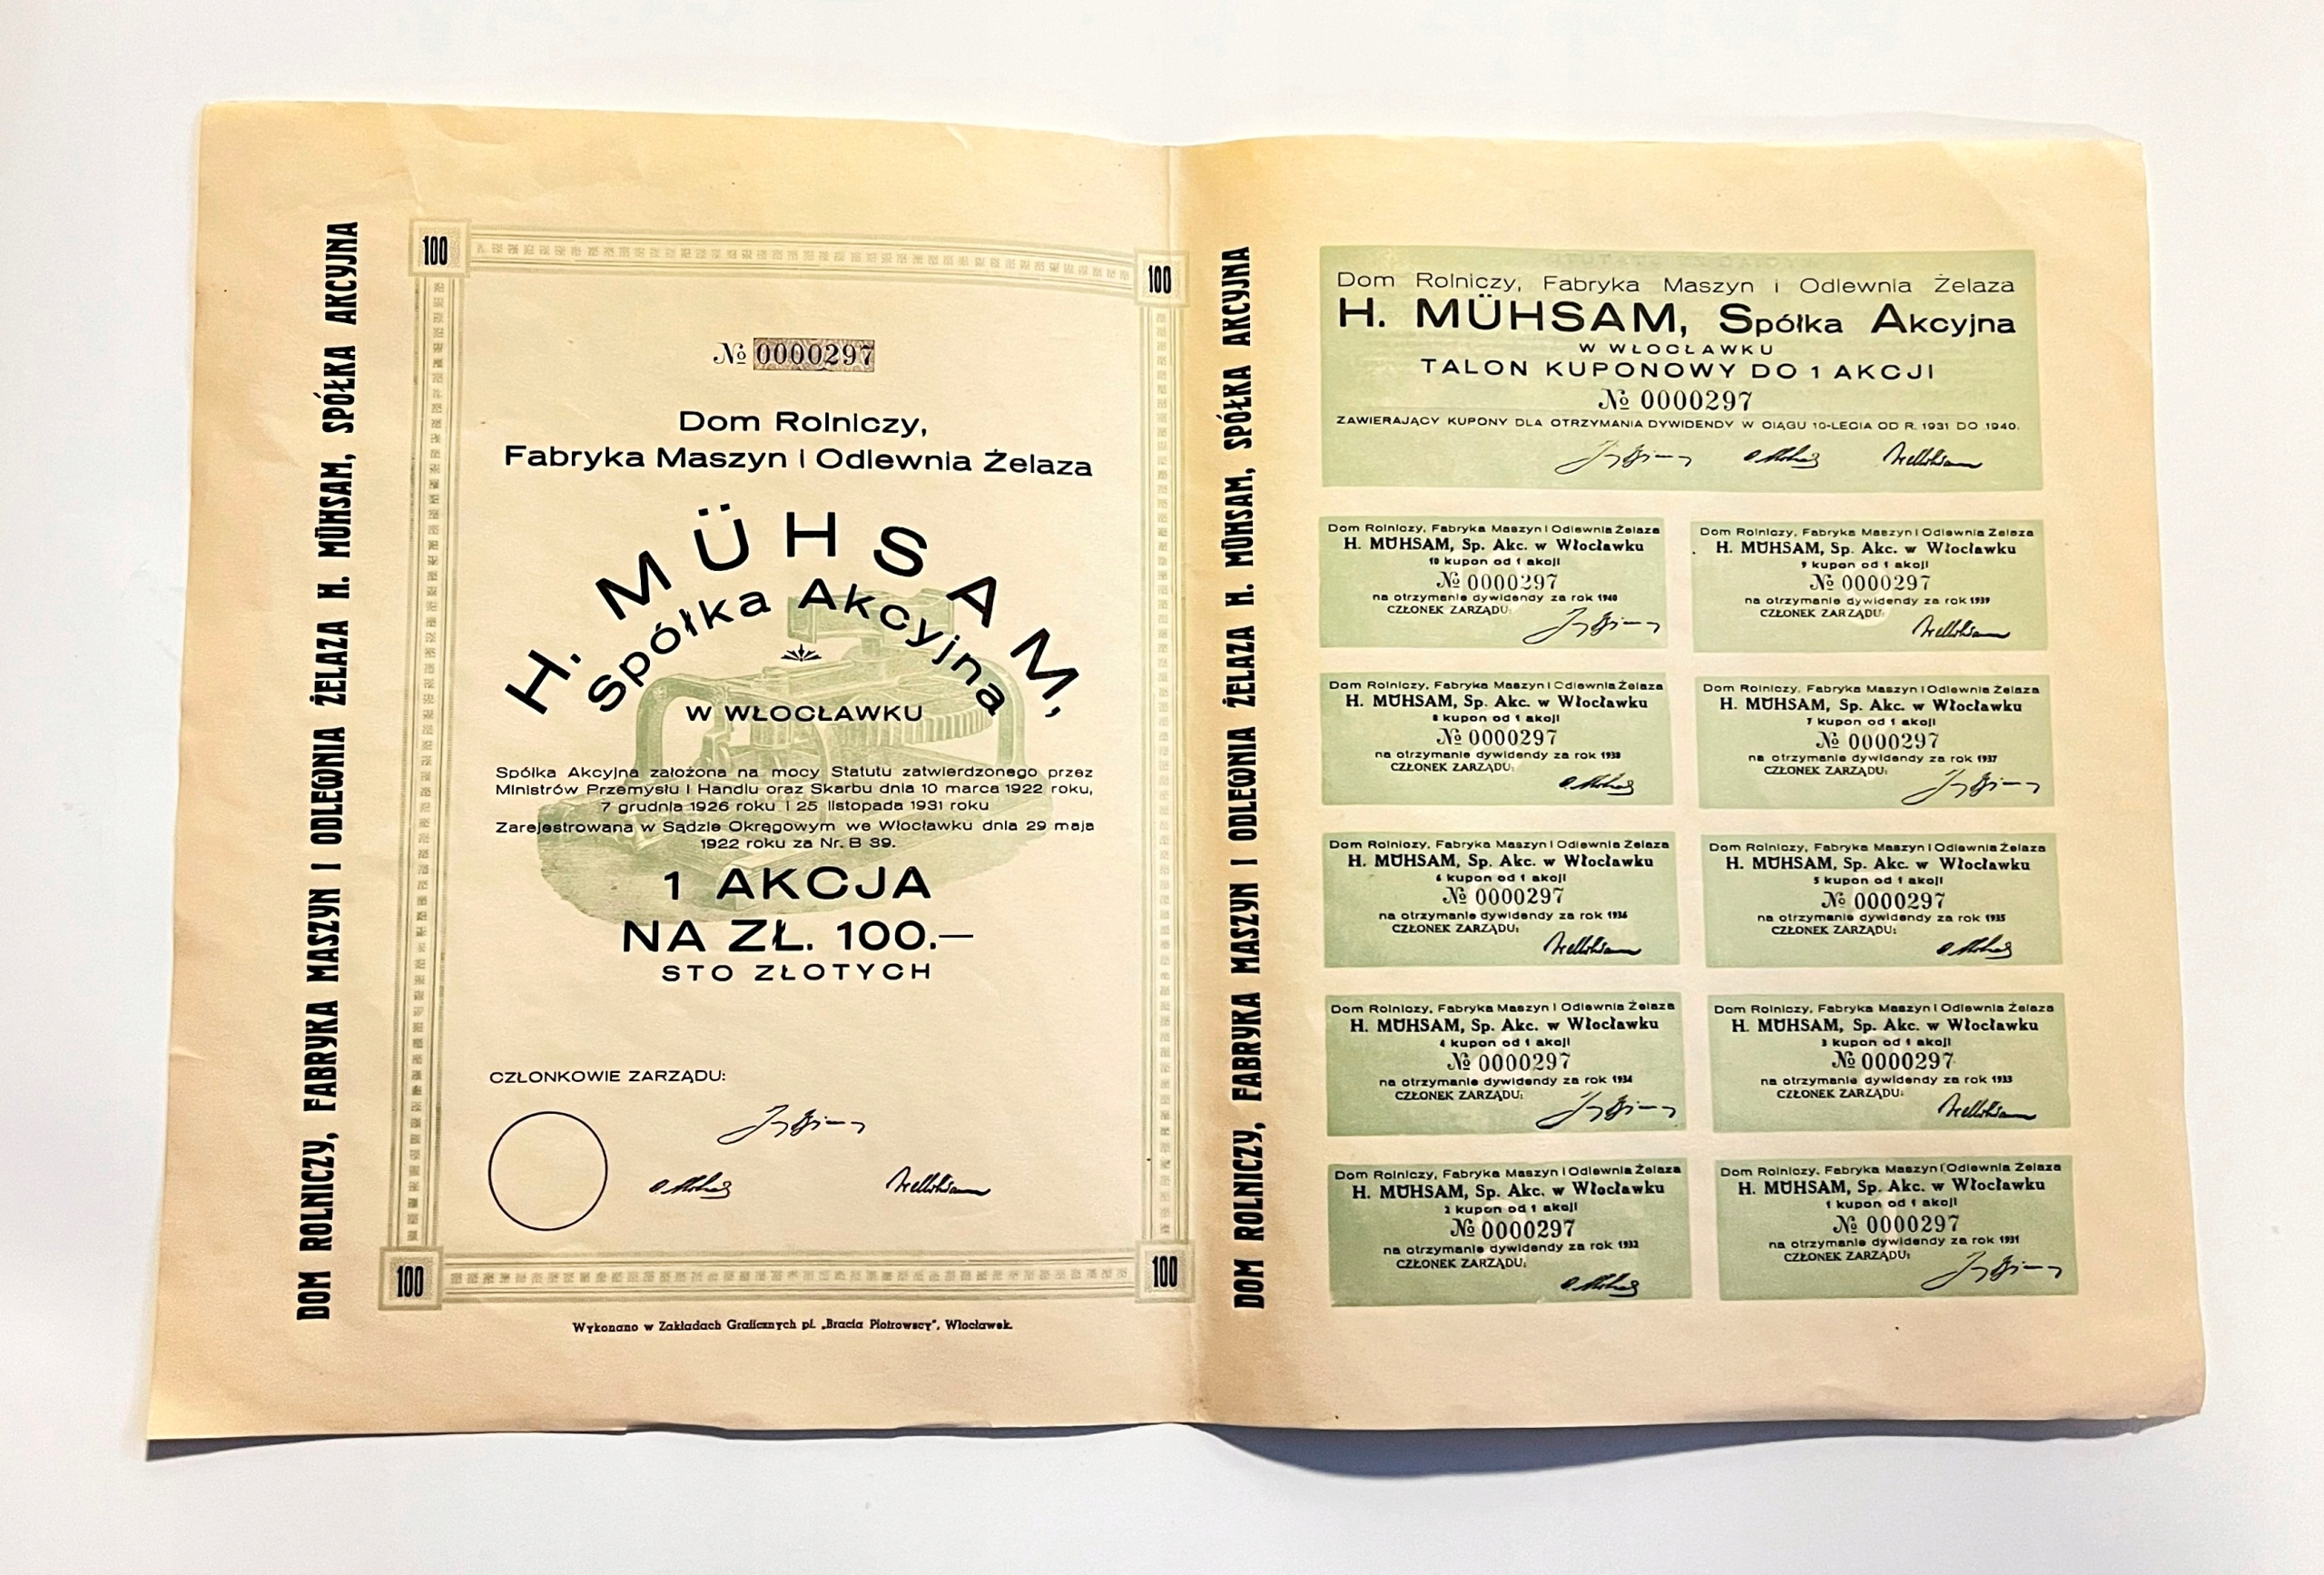 DOM ROLNICZY, FABRYKA MASZYN I ODLEWNIA ŻELAZA H. MÜHSAM, SPÓŁKA AKCYJNA
100
100
№ 0000297
Dom Rolniczy,
Fabryka Maszyn i Odlewnia Żelaza
H. MÜHSAM,
Spółka Akcyjna
W WŁOCŁAWKU
Spółka Akcyjna założona na mocy Statutu zatwierdzonego przez
Ministrów Przemysłu i Handlu oraz Skarbu dnia 10 marca 1922 roku,
7 grudnia 1926 roku i 25 listopada 1931 roku
Zarejestrowana w Sądzie Okręgowym we Włocławku dnia 29 maja
1922 roku za Nr. B 39.
1 AKCJA
NA ZŁ. 100.—
STO ZŁOTYCH
CZŁONKOWIE ZARZĄDU:
100
100
Wykonano w Zakładach Graficznych pf. „Bracia Piotrowscy", Włocławek.
DOM ROLNICZY, FABRYKA MASZYN I ODLEWNIA ŻELAZA H. MÜHSAM, SPÓŁKA AKCYJNA
Dom Rolniczy, Fabryka Maszyn i Odlewnia Żelaza
H. MÜHSAM, Spółka Akcyjna
W WŁOCŁAWKU
TALON KUPONOWY DO 1 AKCJI
№ 0000297
ZAWIERAJĄCY KUPONY DLA OTRZYMANIA DYWIDENDY W CIĄGU 10-LECIA OD R. 1931 DO 1940.
Dom Rolniczy, Fabryka Maszyn i Odlewnia Żelaza
H. MÜHSAM, Sp. Akc. w Włocławku
10 kupon od 1 akcji
№ 0000297
na otrzymanie dywidendy za rok 1940
CZŁONEK ZARZĄDU:
Dom Rolniczy, Fabryka Maszyn i Odlewnia Żelaza
H. MÜHSAM, Sp. Akc. w Włocławku
9 kupon od 1 akcji
№ 0000297
na otrzymanie dywidendy za rok 1939
CZŁONEK ZARZĄDU:
Dom Rolniczy, Fabryka Maszyn i Odlewnia Żelaza
H. MÜHSAM, Sp. Akc. w Włocławku
8 kupon od 1 akcji
№ 0000297
na otrzymanie dywidendy za rok 1938
CZŁONEK ZARZĄDU:
Dom Rolniczy, Fabryka Maszyn i Odlewnia Żelaza
H. MÜHSAM, Sp. Akc. w Włocławku
7 kupon od 1 akcji
№ 0000297
na otrzymanie dywidendy za rok 1937
CZŁONEK ZARZĄDU:
Dom Rolniczy, Fabryka Maszyn i Odlewnia Żelaza
H. MÜHSAM, Sp. Akc. w Włocławku
6 kupon od 1 akcji
№ 0000297
na otrzymanie dywidendy za rok 1936
CZŁONEK ZARZĄDU:
Dom Rolniczy, Fabryka Maszyn i Odlewnia Żelaza
H. MÜHSAM, Sp. Akc. w Włocławku
5 kupon od 1 akcji
№ 0000297
na otrzymanie dywidendy za rok 1935
CZŁONEK ZARZĄDU:
Dom Rolniczy, Fabryka Maszyn i Odlewnia Żelaza
H. MÜHSAM, Sp. Akc. w Włocławku
4 kupon od 1 akcji
№ 0000297
na otrzymanie dywidendy za rok 1934
CZŁONEK ZARZĄDU:
Dom Rolniczy, Fabryka Maszyn i Odlewnia Żelaza
H. MÜHSAM, Sp. Akc. w Włocławku
3 kupon od 1 akcji
№ 0000297
na otrzymanie dywidendy za rok 1933
CZŁONEK ZARZĄDU:
Dom Rolniczy, Fabryka Maszyn i Odlewnia Żelaza
H. MÜHSAM, Sp. Akc. w Włocławku
2 kupon od 1 akcji
№ 0000297
na otrzymanie dywidendy za rok 1932
CZŁONEK ZARZĄDU:
Dom Rolniczy, Fabryka Maszyn i Odlewnia Żelaza
H. MÜHSAM, Sp. Akc. w Włocławku
1 kupon od 1 akcji
№ 0000297
na otrzymanie dywidendy za rok 1931
CZŁONEK ZARZĄDU: